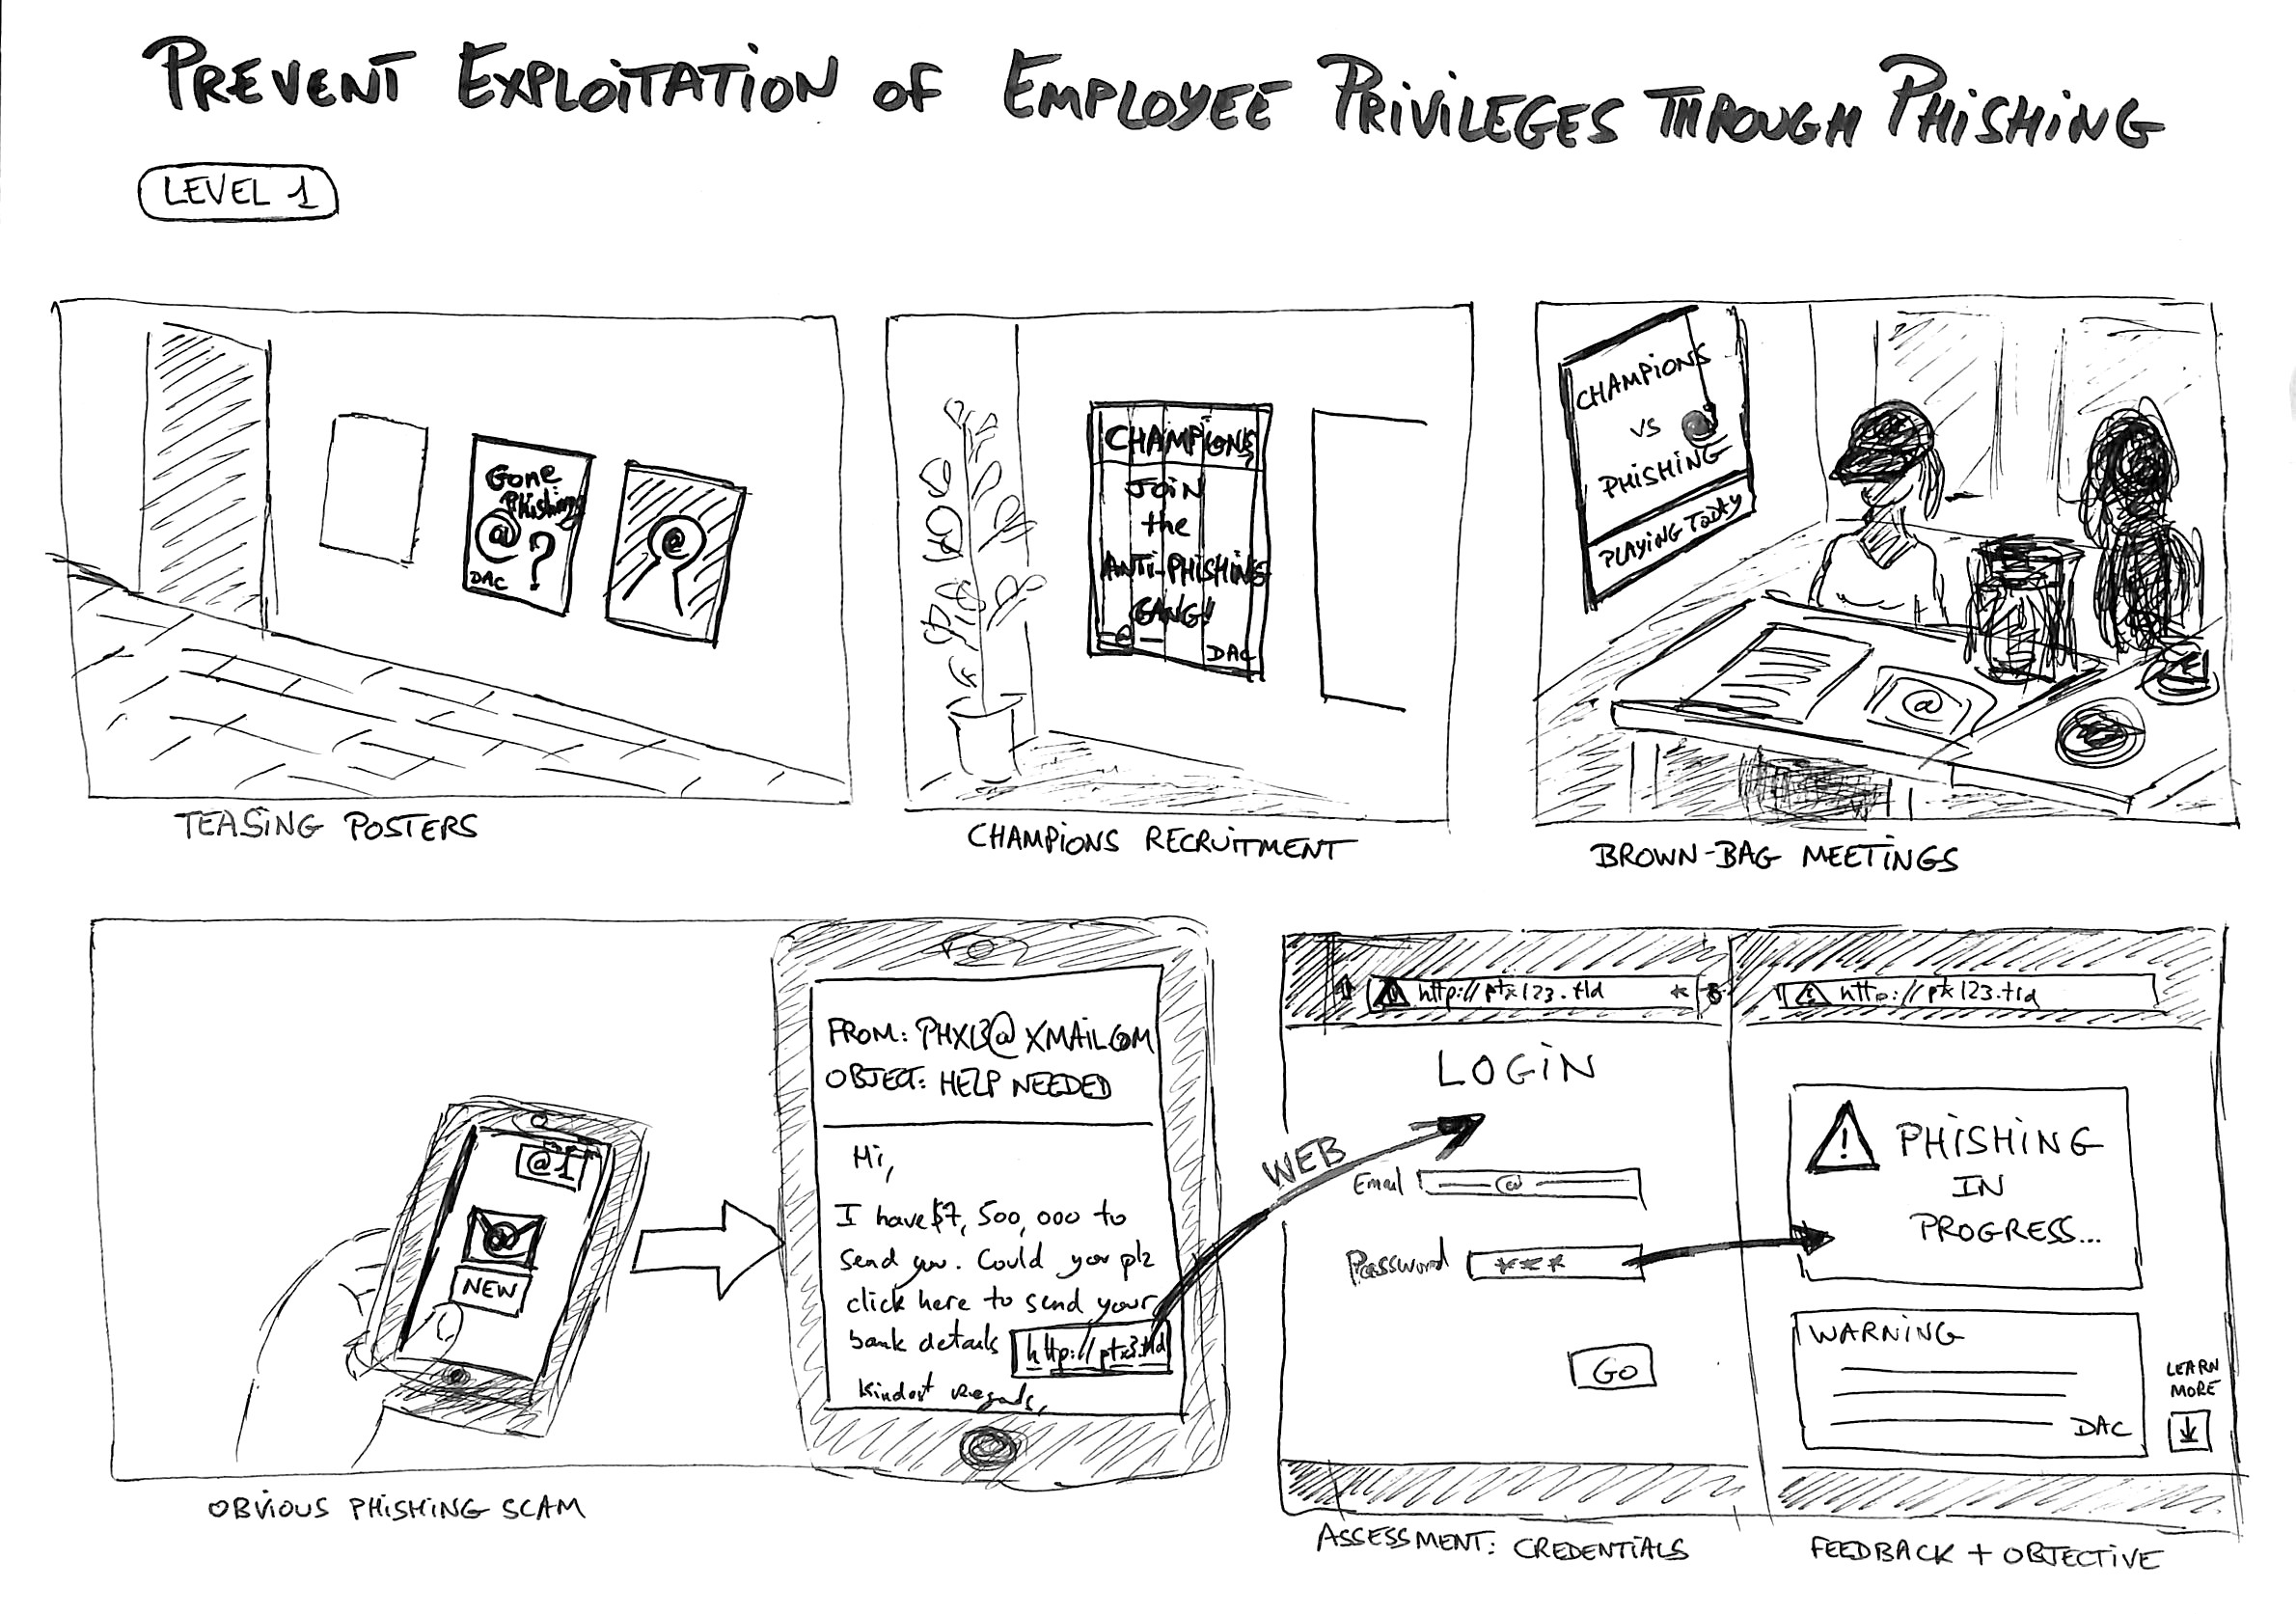 PREVENT EXPLOITATION OF EMPLOYEE PRIVILEGES THROUGH PHISHING
LEVEL 1
Gone
Phishing
@ ?
DAC
@
TEASING POSTERS
CHAMPIONS
JOIN
the
ANTI-PHISHING
GANG!
@
DAC
CHAMPIONS RECRUITMENT
CHAMPIONS
VS
PHISHING
PLAYING TODAY
@
BROWN-BAG MEETINGS
@1
@
NEW
OBVIOUS PHISHING SCAM
FROM: PHXB@XMAIL.COM
OBJECT: HELP NEEDED
Hi,
I have $7,500,000 to
send you. Could you plz
click here to send your
bank details http://ptx3.tld
Kindest Regards,
WEB
http://ptx123.tld
LOGIN
Email @
Password ***
GO
ASSESSMENT: CREDENTIALS
http://ptx123.tld
! PHISHING
IN
PROGRESS...
WARNING
DAC
LEARN
MORE
FEEDBACK + OBJECTIVE